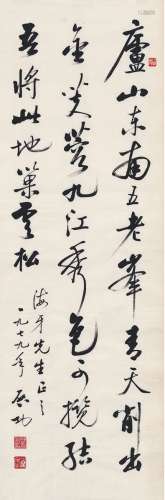 廬山东南五老峯青天削出
金芙蓉九江秀色可攬结
吾將此地巢雲松
海牙先生正之
一九七九年 启功